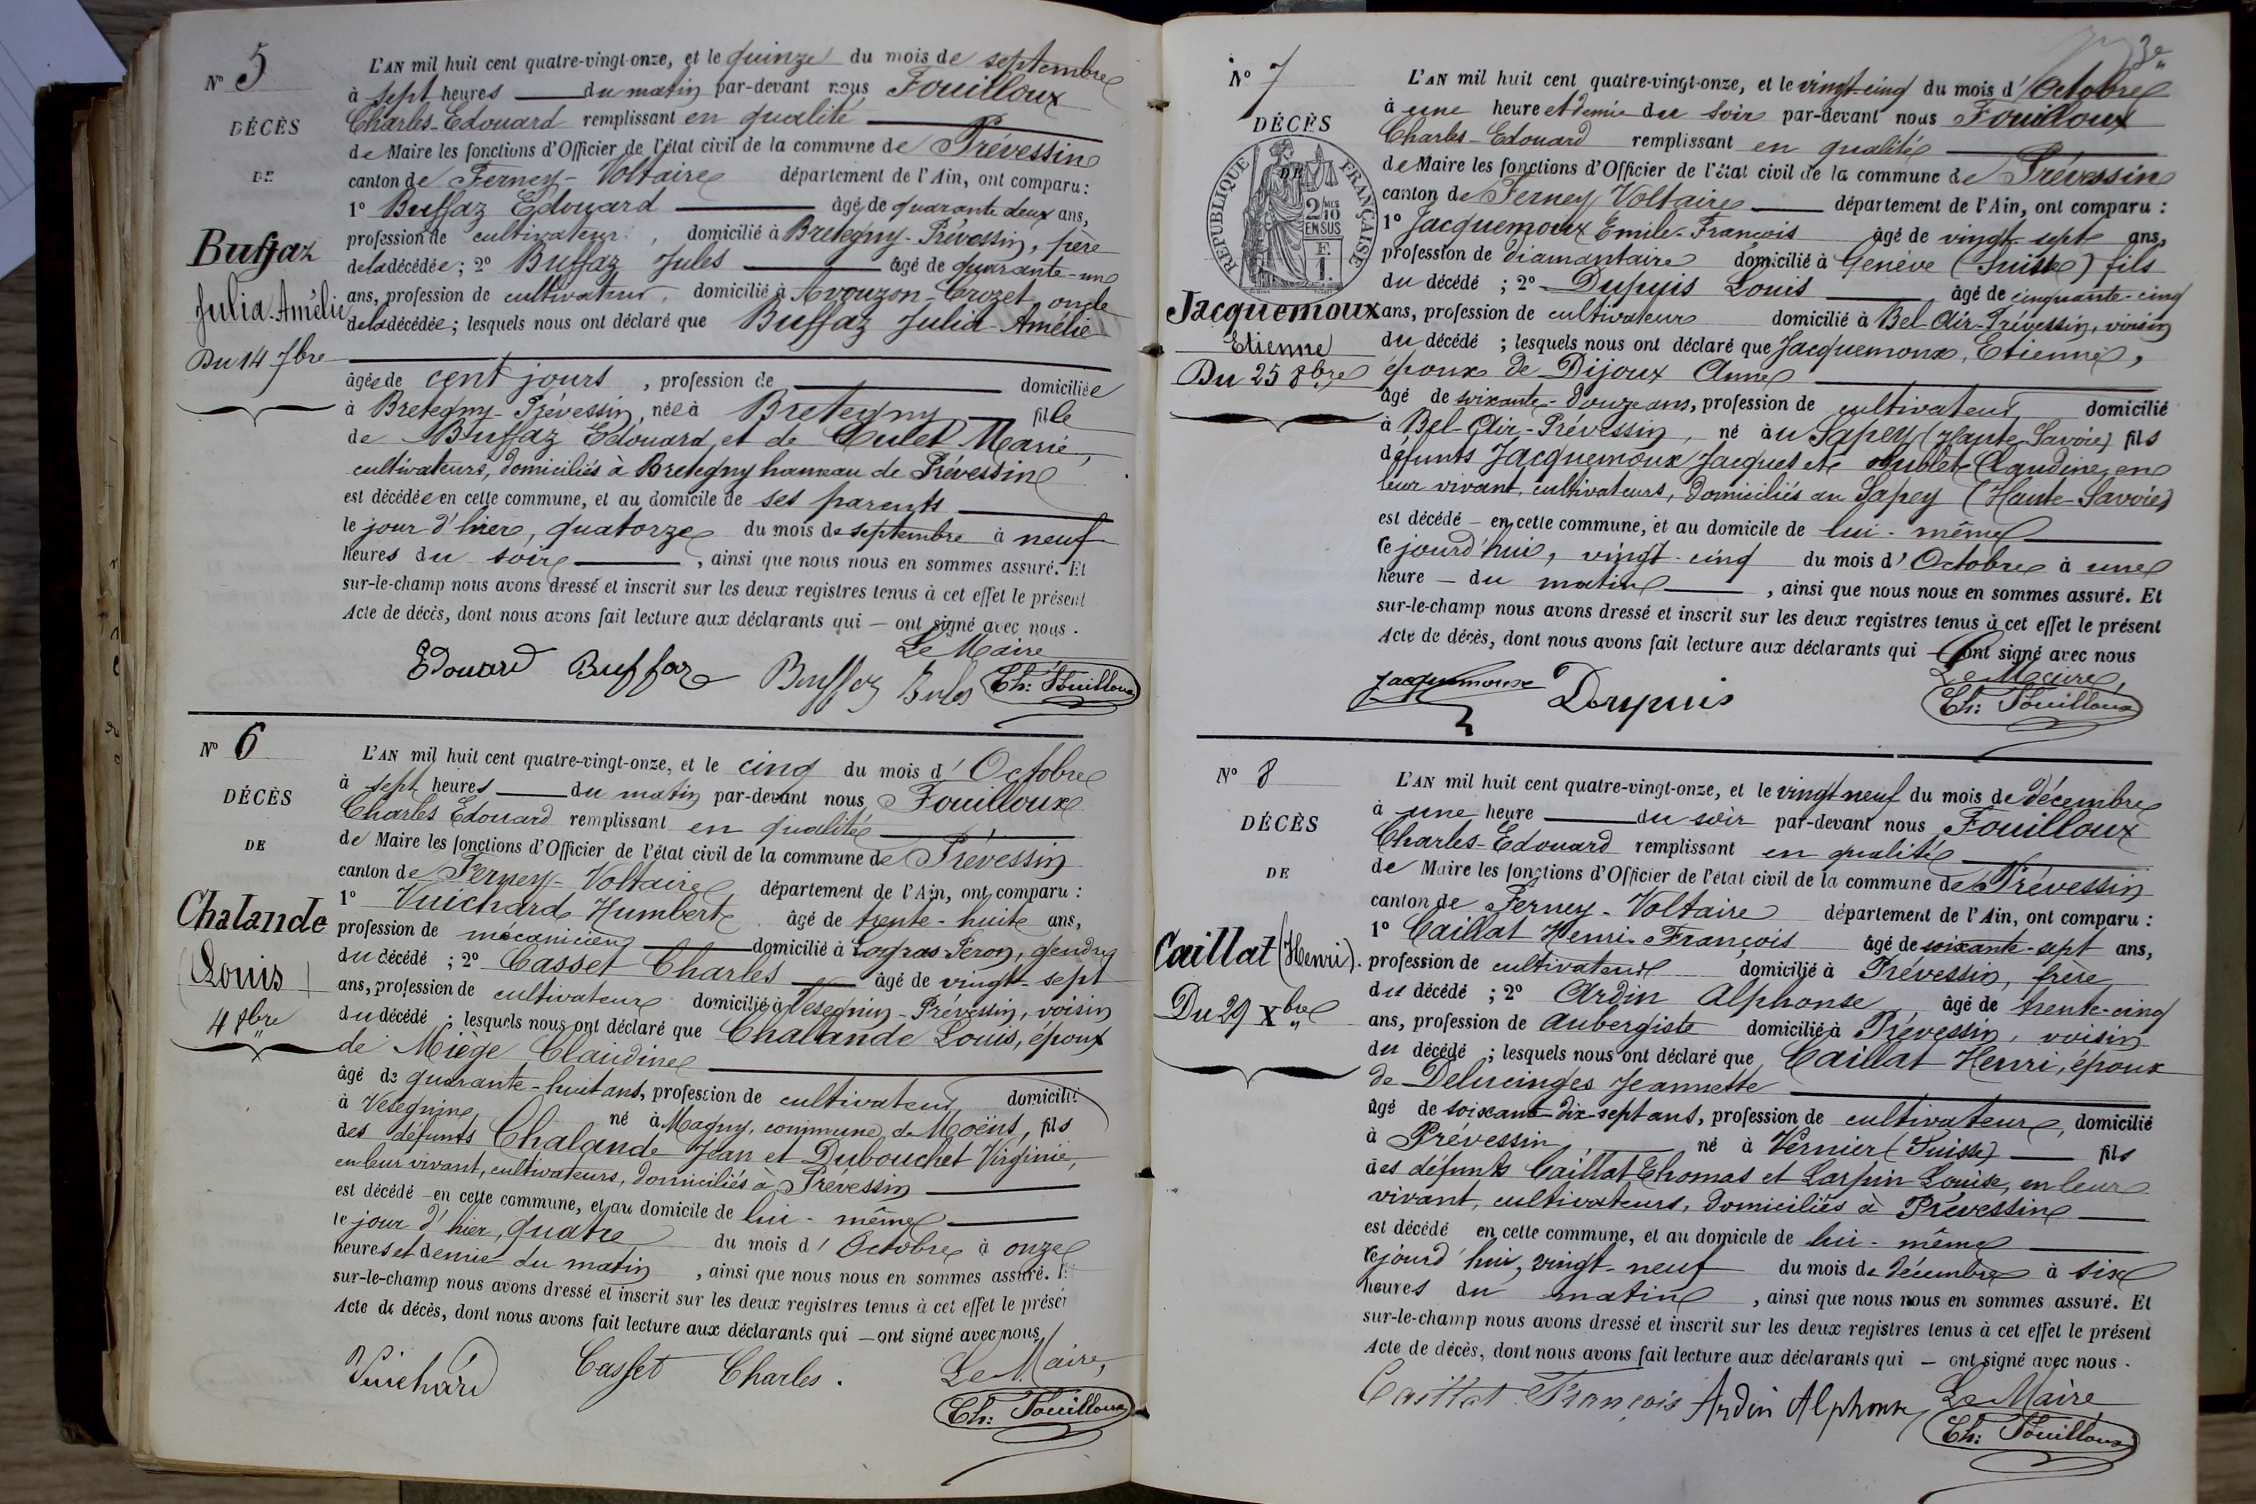 N° 5
DÉCÈS
DE
Buffaz
Julia-Amélie
Du 14 7bre
L'AN mil huit cent quatre-vingt-onze, et le quinze du mois de septembre
à sept heures du matin par-devant nous Fouilloux
Charles-Edouard remplissant en qualité
de Maire les fonctions d'Officier de l'état civil de la commune de Prévessin
canton de Ferney-Voltaire département de l'Ain, ont comparu :
1° Buffaz Edouard âgé de quarante deux ans,
profession de cultivateur, domicilié à Bretegny-Prévessin, père
de la décédée ; 2° Buffaz Jules âgé de quarante-un
ans, profession de cultivateur, domicilié à Avouzon-Crozet, oncle
de la décédée ; lesquels nous ont déclaré que Buffaz Julia-Amélie
âgée de cent jours, profession de domiciliée
à Bretegny-Prévessin, née à Bretegny fille
de Buffaz Edouard et de Culet Marie,
cultivateurs, domiciliés à Bretegny hameau de Prévessin
est décédée en cette commune, et au domicile de ses parents
le jour d'hier, quatorze du mois de septembre à neuf
heures du soir, ainsi que nous nous en sommes assuré. Et
sur-le-champ nous avons dressé et inscrit sur les deux registres tenus à cet effet le présent
Acte de décès, dont nous avons fait lecture aux déclarants qui — ont signé avec nous.
Le Maire
Edouard Buffaz Buffaz Jules Ch: Fouilloux
N° 6
DÉCÈS
DE
Chalande
(Louis)
4 8bre
L'AN mil huit cent quatre-vingt-onze, et le cinq du mois d'Octobre
à sept heures du matin par-devant nous Fouilloux
Charles Edouard remplissant en qualité
de Maire les fonctions d'Officier de l'état civil de la commune de Prévessin
canton de Ferney-Voltaire département de l'Ain, ont comparu :
1° Vuichard Humbert âgé de trente-huit ans,
profession de mécanicien domicilié à Logras-Péron, gendre
du décédé ; 2° Casset Charles âgé de vingt-sept
ans, profession de cultivateur domicilié à Vesegnin-Prévessin, voisin
du décédé ; lesquels nous ont déclaré que Chalande Louis, époux
de Miège Claudine
âgé de quarante-huit ans, profession de cultivateur domicilié
à Vesegnin, né à Magny, commune de Moëns, fils
des défunts Chalande Jean et Dubouchet Virginie,
en leur vivant, cultivateurs, domiciliés à Prévessin
est décédé en cette commune, et au domicile de lui-même
le jour d'hier, quatre du mois d'Octobre à onze
heures et demie du matin, ainsi que nous nous en sommes assuré. E
sur-le-champ nous avons dressé et inscrit sur les deux registres tenus à cet effet le présen
Acte de décès, dont nous avons fait lecture aux déclarants qui — ont signé avec nous
Vuichard Casset Charles. Le Maire,
Ch: Fouilloux
3e
N° 7
DÉCÈS
DE
RÉPUBLIQUE FRANÇAISE
2/10 EN SUS
Jacquemoux
Etienne
Du 25 8bre
L'AN mil huit cent quatre-vingt-onze, et le vingt-cinq du mois d'Octobre
à une heure et demie du soir par-devant nous Fouilloux
Charles-Edouard remplissant en qualité
de Maire les fonctions d'Officier de l'état civil de la commune de Prévessin
canton de Ferney Voltaire département de l'Ain, ont comparu :
1° Jacquemoux Emile-François âgé de vingt-sept ans,
profession de diamantaire domicilié à Genève (Suisse) fils
du décédé ; 2° Dupuis Louis âgé de cinquante-cinq
ans, profession de cultivateur domicilié à Bel-Air-Prévessin, voisin
du décédé ; lesquels nous ont déclaré que Jacquemoux, Etienne,
époux de Dijoux Anne
âgé de soixante-douze ans, profession de cultivateur domicilié
à Bel-Air-Prévessin, né au Sapey (Haute-Savoie) fils
défunts Jacquemoux Jacques et Claudine, en
leur vivant, cultivateurs, domiciliés au Sapey (Haute-Savoie)
est décédé — en cette commune, et au domicile de lui-même
ce jourd'hui, vingt-cinq du mois d'Octobre à une
heure — du matin, ainsi que nous nous en sommes assuré. Et
sur-le-champ nous avons dressé et inscrit sur les deux registres tenus à cet effet le présent
Acte de décès, dont nous avons fait lecture aux déclarants qui — ont signé avec nous
Le Maire,
Jacquemoux Dupuis Ch: Fouilloux
N° 8
DÉCÈS
DE
Caillat (Henri).
Du 29 Xbre
L'AN mil huit cent quatre-vingt-onze, et le vingt neuf du mois de décembre
à une heure du soir par-devant nous Fouilloux
Charles-Edouard remplissant en qualité
de Maire les fonctions d'Officier de l'état civil de la commune de Prévessin
canton de Ferney-Voltaire département de l'Ain, ont comparu :
1° Caillat Henri-François âgé de soixante-sept ans,
profession de cultivateur domicilié à Prévessin, frère
du décédé ; 2° Ardin Alphonse âgé de trente-cinq
ans, profession de Aubergiste domicilié à Prévessin, voisin
du décédé ; lesquels nous ont déclaré que Caillat Henri, époux
de Delucinges Jeannette
âgé de soixante-dix-sept ans, profession de cultivateur, domicilié
à Prévessin, né à Vernier (Suisse) fils
des défunts Caillat Thomas et Larpin Louise, en leur
vivant, cultivateurs, domiciliés à Prévessin
est décédé en cette commune, et au domicile de lui-même
ce jourd'hui, vingt-neuf du mois de décembre à six
heures du matin, ainsi que nous nous en sommes assuré. Et
sur-le-champ nous avons dressé et inscrit sur les deux registres tenus à cet effet le présent
Acte de décès, dont nous avons fait lecture aux déclarants qui — ont signé avec nous.
Caillat François Ardin Alphonse Le Maire
Ch: Fouilloux